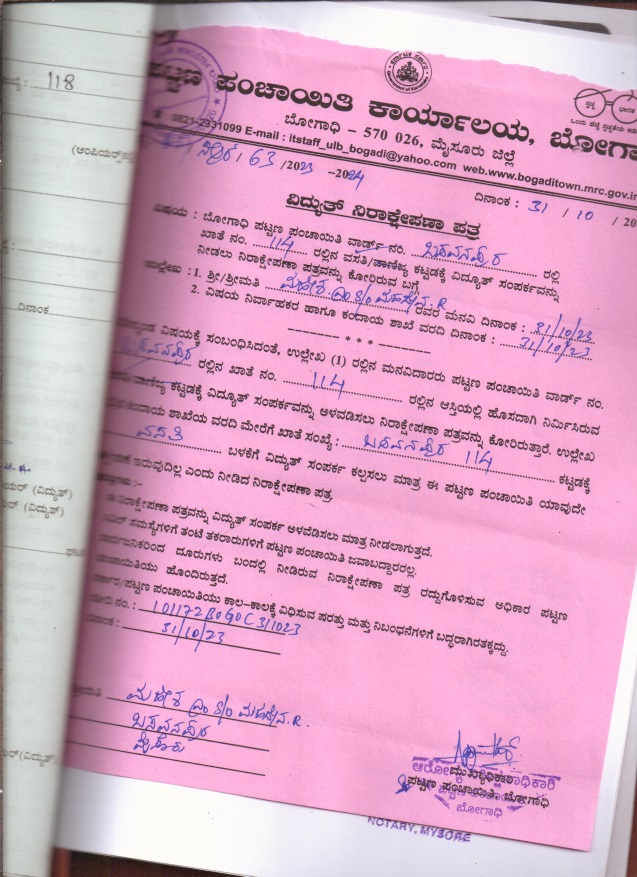 118
ಪಟ್ಟಣ ಪಂಚಾಯಿತಿ ಕಾರ್ಯಾಲಯ, ಬೋಗಾ
ಬೋಗಾಧಿ – 570 026, ಮೈಸೂರು ಜಿಲ್ಲೆ
0821-2931099 E-mail : itstaff_ulb_bogadi@yahoo.com web.www.bogaditown.mrc.gov.in
63 /2023 -2024
ದಿನಾಂಕ : 31 / 10 / 20
ವಿದ್ಯುತ್ ನಿರಾಕ್ಷೇಪಣಾ ಪತ್ರ
ವಿಷಯ : ಬೋಗಾಧಿ ಪಟ್ಟಣ ಪಂಚಾಯಿತಿ ವಾರ್ಡ್ ನಂ. ಬಸವನಪುರ ರಲ್ಲಿ
ಖಾತೆ ನಂ. 114 ರಲ್ಲಿನ ವಸತಿ/ವಾಣಿಜ್ಯ ಕಟ್ಟಡಕ್ಕೆ ವಿದ್ಯುತ್ ಸಂಪರ್ಕವನ್ನು
ನೀಡಲು ನಿರಾಕ್ಷೇಪಣಾ ಪತ್ರವನ್ನು ಕೋರಿರುವ ಬಗ್ಗೆ
ಉಲ್ಲೇಖ : 1. ಶ್ರೀ/ಶ್ರೀಮತಿ ಮಹೇಶ S/o ರವರ ಮನವಿ ದಿನಾಂಕ : 31/10/23
2. ವಿಷಯ ನಿರ್ವಾಹಕರ ಹಾಗೂ ಕಂದಾಯ ಶಾಖೆ ವರದಿ ದಿನಾಂಕ : 31/10/23
* * *
ವಿಷಯಕ್ಕೆ ಸಂಬಂಧಿಸಿದಂತೆ, ಉಲ್ಲೇಖ (1) ರಲ್ಲಿನ ಮನವಿದಾರರು ಪಟ್ಟಣ ಪಂಚಾಯಿತಿ ವಾರ್ಡ್ ನಂ.
ಬಸವನಪುರ ರಲ್ಲಿನ ಖಾತೆ ನಂ. 114 ರಲ್ಲಿನ ಆಸ್ತಿಯಲ್ಲಿ ಹೊಸದಾಗಿ ನಿರ್ಮಿಸಿರುವ
ವಾಣಿಜ್ಯ ಕಟ್ಟಡಕ್ಕೆ ವಿದ್ಯುತ್ ಸಂಪರ್ಕವನ್ನು ಅಳವಡಿಸಲು ನಿರಾಕ್ಷೇಪಣಾ ಪತ್ರವನ್ನು ಕೋರಿರುತ್ತಾರೆ. ಉಲ್ಲೇಖ
ಕಂದಾಯ ಶಾಖೆಯ ವರದಿ ಮೇರೆಗೆ ಖಾತೆ ಸಂಖ್ಯೆ : ಬಸವನಪುರ 114 ಕಟ್ಟಡಕ್ಕೆ
ವಸತಿ ಬಳಕೆಗೆ ವಿದ್ಯುತ್ ಸಂಪರ್ಕ ಕಲ್ಪಸಲು ಮಾತ್ರ ಈ ಪಟ್ಟಣ ಪಂಚಾಯಿತಿ ಯಾವುದೇ
ಇರುವುದಿಲ್ಲ ಎಂದು ನೀಡಿದ ನಿರಾಕ್ಷೇಪಣಾ ಪತ್ರ
ನಿರಾಕ್ಷೇಪಣಾ ಪತ್ರವನ್ನು ವಿದ್ಯುತ್ ಸಂಪರ್ಕ ಅಳವಡಿಸಲು ಮಾತ್ರ ನೀಡಲಾಗುತ್ತದೆ.
ಸಮಸ್ಯೆಗಳಿಗೆ ತಂಟೆ ತಕರಾರುಗಳಿಗೆ ಪಟ್ಟಣ ಪಂಚಾಯಿತಿ ಜವಾಬದ್ದಾರರಲ್ಲ.
ದೂರುಗಳು ಬಂದಲ್ಲಿ ನೀಡಿರುವ ನಿರಾಕ್ಷೇಪಣಾ ಪತ್ರ ರದ್ದುಗೊಳಿಸುವ ಅಧಿಕಾರ ಪಟ್ಟಣ
ಹೊಂದಿರುತ್ತದೆ.
ಪಟ್ಟಣ ಪಂಚಾಯಿತಿಯು ಕಾಲ-ಕಾಲಕ್ಕೆ ವಿಧಿಸುವ ಷರತ್ತು ಮತ್ತು ನಿಬಂಧನೆಗಳಿಗೆ ಬದ್ಧರಾಗಿರತಕ್ಕದ್ದು.
ನಂ. :
31/10/23
ಮಹೇಶ S/o
ಬಸವನಪುರ
ಮೈಸೂರು
ಪಟ್ಟಣ ಪಂಚಾಯಿತಿ, ಬೋಗಾಧಿ
ಬೋಗಾಧಿ
NOTARY, MYSORE
ದಿನಾಂಕ
(ವಿದ್ಯುತ್)
(ವಿದ್ಯುತ್)
(ವಿದ್ಯುತ್)